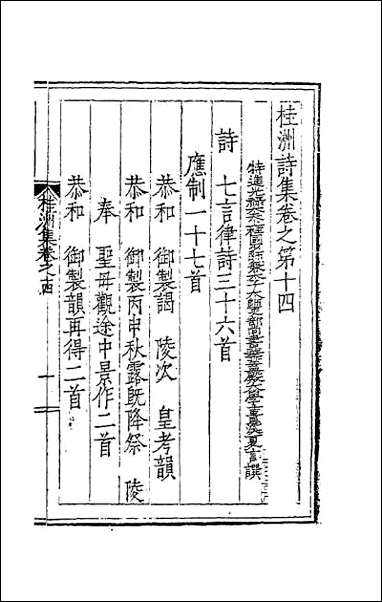 桂洲詩集卷之第十四
特進光祿大夫柱國少師兼太子太師吏部尚書華蓋殿大學士貴溪夏言撰
詩　七言律詩三十六首
應制一十七首
恭和　御製謁　陵次　皇考韻
恭和　御製丙申秋露既降祭　陵
奉　聖母觀途中景作二首
恭和　御製韻再得二首
桂洲集卷之十四
一